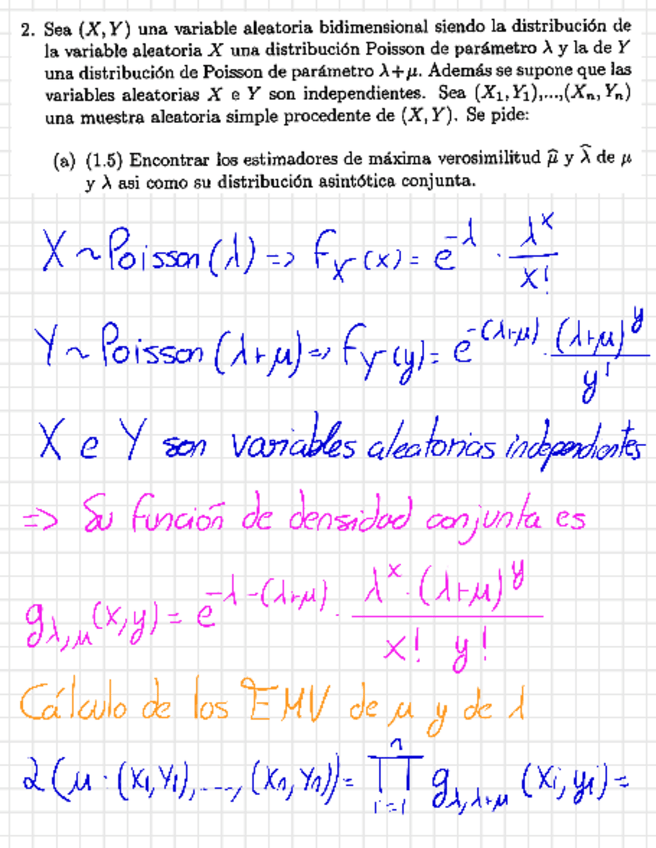 2. Sea (X,Y) una variable aleatoria bidimensional siendo la distribución de
la variable aleatoria X una distribución Poisson de parámetro λ y la de Y
una distribución de Poisson de parámetro λ+μ. Además se supone que las
variables aleatorias X e Y son independientes. Sea (X₁,Y₁),...,(Xₙ,Yₙ)
una muestra aleatoria simple procedente de (X,Y). Se pide:
(a) (1.5) Encontrar los estimadores de máxima verosimilitud μ̂ y λ̂ de μ
y λ asi como su distribución asintótica conjunta.
X ~ Poisson (λ) => f_X (x) = e^{-λ} · λ^x / x!
Y ~ Poisson (λ+μ) => f_Y (y) = e^{-(λ+μ)} · (λ+μ)^y / y!
X e Y son variables aleatorias independientes
=> Su función de densidad conjunta es
g_{λ,μ} (x,y) = e^{-λ-(λ+μ)} · λ^x · (λ+μ)^y / x! y!
Cálculo de los EMV de μ y de λ
L(μ : (X₁,Y₁),...,(Xₙ,Yₙ)) = ∏_{i=1}^{n} g_{λ,λ+μ} (xᵢ, yᵢ) =